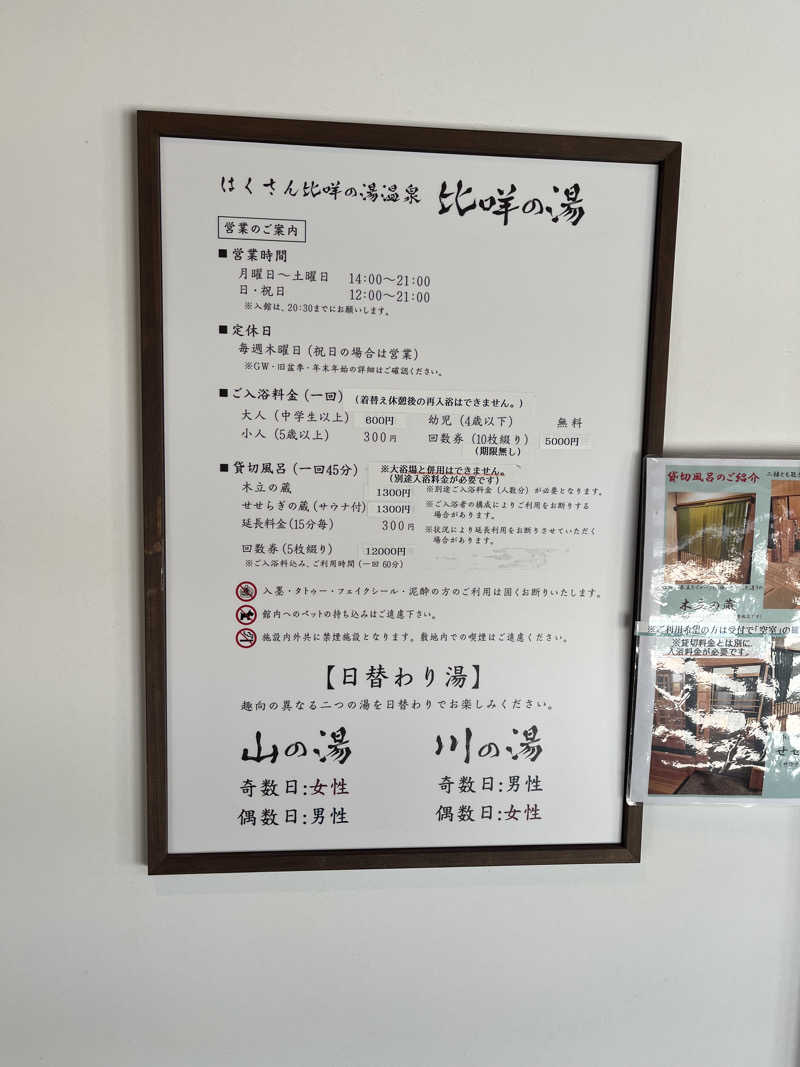 はくさん比咩の湯温泉 比咩の湯
営業のご案内
■営業時間
月曜日～土曜日 14:00～21:00
日・祝日 12:00～21:00
※入館は、20:30までにお願いします。
■定休日
毎週木曜日(祝日の場合は営業)
※GW・旧盆季・年末年始の詳細はご確認ください。
■ご入浴料金(一回) (着替え休憩後の再入浴はできません。)
大人(中学生以上) 600円 幼児(4歳以下) 無料
小人(5歳以上) 300円 回数券(10枚綴り) 5000円
(期限無し)
■貸切風呂(一回45分) ※大浴場と併用はできません。
(別途入浴料金が必要です)
木立の蔵 1300円 ※別途ご入浴料金(人数分)が必要となります。
せせらぎの蔵(サウナ付) 1300円 ※ご入浴者の構成によりご利用をお断りする
場合があります。
延長料金(15分毎) 300円 ※状況により延長利用をお断りさせていただく
場合があります。
回数券(5枚綴り) 12000円
※ご入浴料込み、ご利用時間(一回60分)
入墨・タトゥー・フェイクシール・泥酔の方のご利用は固くお断りいたします。
館内へのペットの持ち込みはご遠慮下さい。
施設内外共に禁煙施設となります。敷地内での喫煙はご遠慮ください。
【日替わり湯】
趣向の異なる二つの湯を日替わりでお楽しみください。
山の湯 川の湯
奇数日:女性 奇数日:男性
偶数日:男性 偶数日:女性
貸切風呂のご紹介
木立の蔵
※ご利用希望の方は受付で「空室」の
※貸切料金とは別に
入浴料金が必要です。
せせ